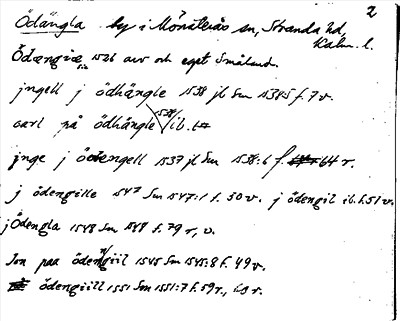 2
Ödängla by i Mönsterås sn, Stranda hd,
Kalm. l.
Ödængiæ 1526 arv och eget Småland.
jngell j ödhängle 1538 jb Sm 1538:5 f. 7 v.
carl på ödhängle 1538 ib.
jnge j ödengell 1537 jb Sm 1538:6 f. 64 r.
j ödengille 1547 Sm 1547:1 f. 50 v. j ödengil ib. f. 51 v.
j Ödengla 1548 Sm 1548 f. 79 r, v.
Jon paa ödengiil 1545 Sm 1545:8 f. 49 v.
ödengiill 1551 Sm 1551:7 f. 59 r., 60 r.